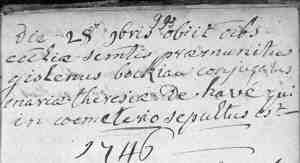 Die 28ᵃ 9bris obiit oībs
eccliæ sem̄tis præmunitus
gislenus bockiau conjugatus
mariæ theresiæ De have qui
in coemeterio sepultus est
1746